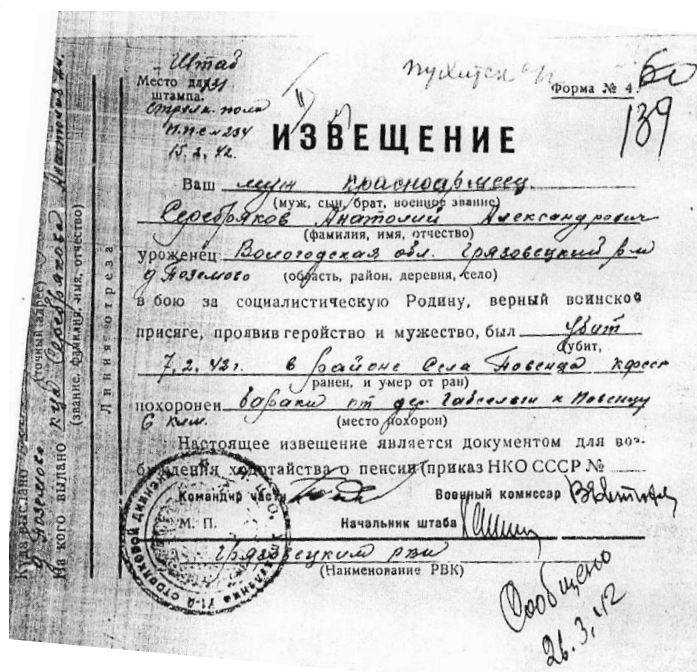 Штаб
Место для
штампа.
стрелк. полка
15.2.42.
Форма № 4.
60
139
ИЗВЕЩЕНИЕ
Ваш муж красноармеец
(муж, сын, брат, военное звание)
Серебряков Анатолий Александрович
(фамилия, имя, отчество)
уроженец Вологодская обл. Грязовецкий р-н
д Поземово (область, район, деревня, село)
в бою за социалистическую Родину, верный воинской
присяге, проявив геройство и мужество, был убит
(убит,
7.2.42г. в районе села Повенца
ранен, и умер от ран)
похоронен бараки от дер. Габсельги к Повенцу
6 клм. (место похорон)
Настоящее извещение является документом для воз-
буждения ходотайства о пенсии (приказ НКО СССР №
Командир части Военный комиссар
М. П. Начальник штаба
Грязовецким рвк
(Наименование РВК)
Сообщено
26.3.42
Линия отреза
(звание, фамилия, имя, отчество)
На кого выдано к-ца Серебрякова Анатолия Ал.
Куда выслано
точный адрес)
д Поземово
71-й стрелковой дивизии